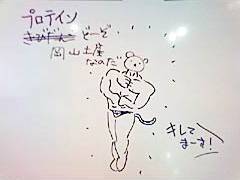 プロテイン
きびだんご どーぞ
岡山土産
なのだ
キレて
まーす!